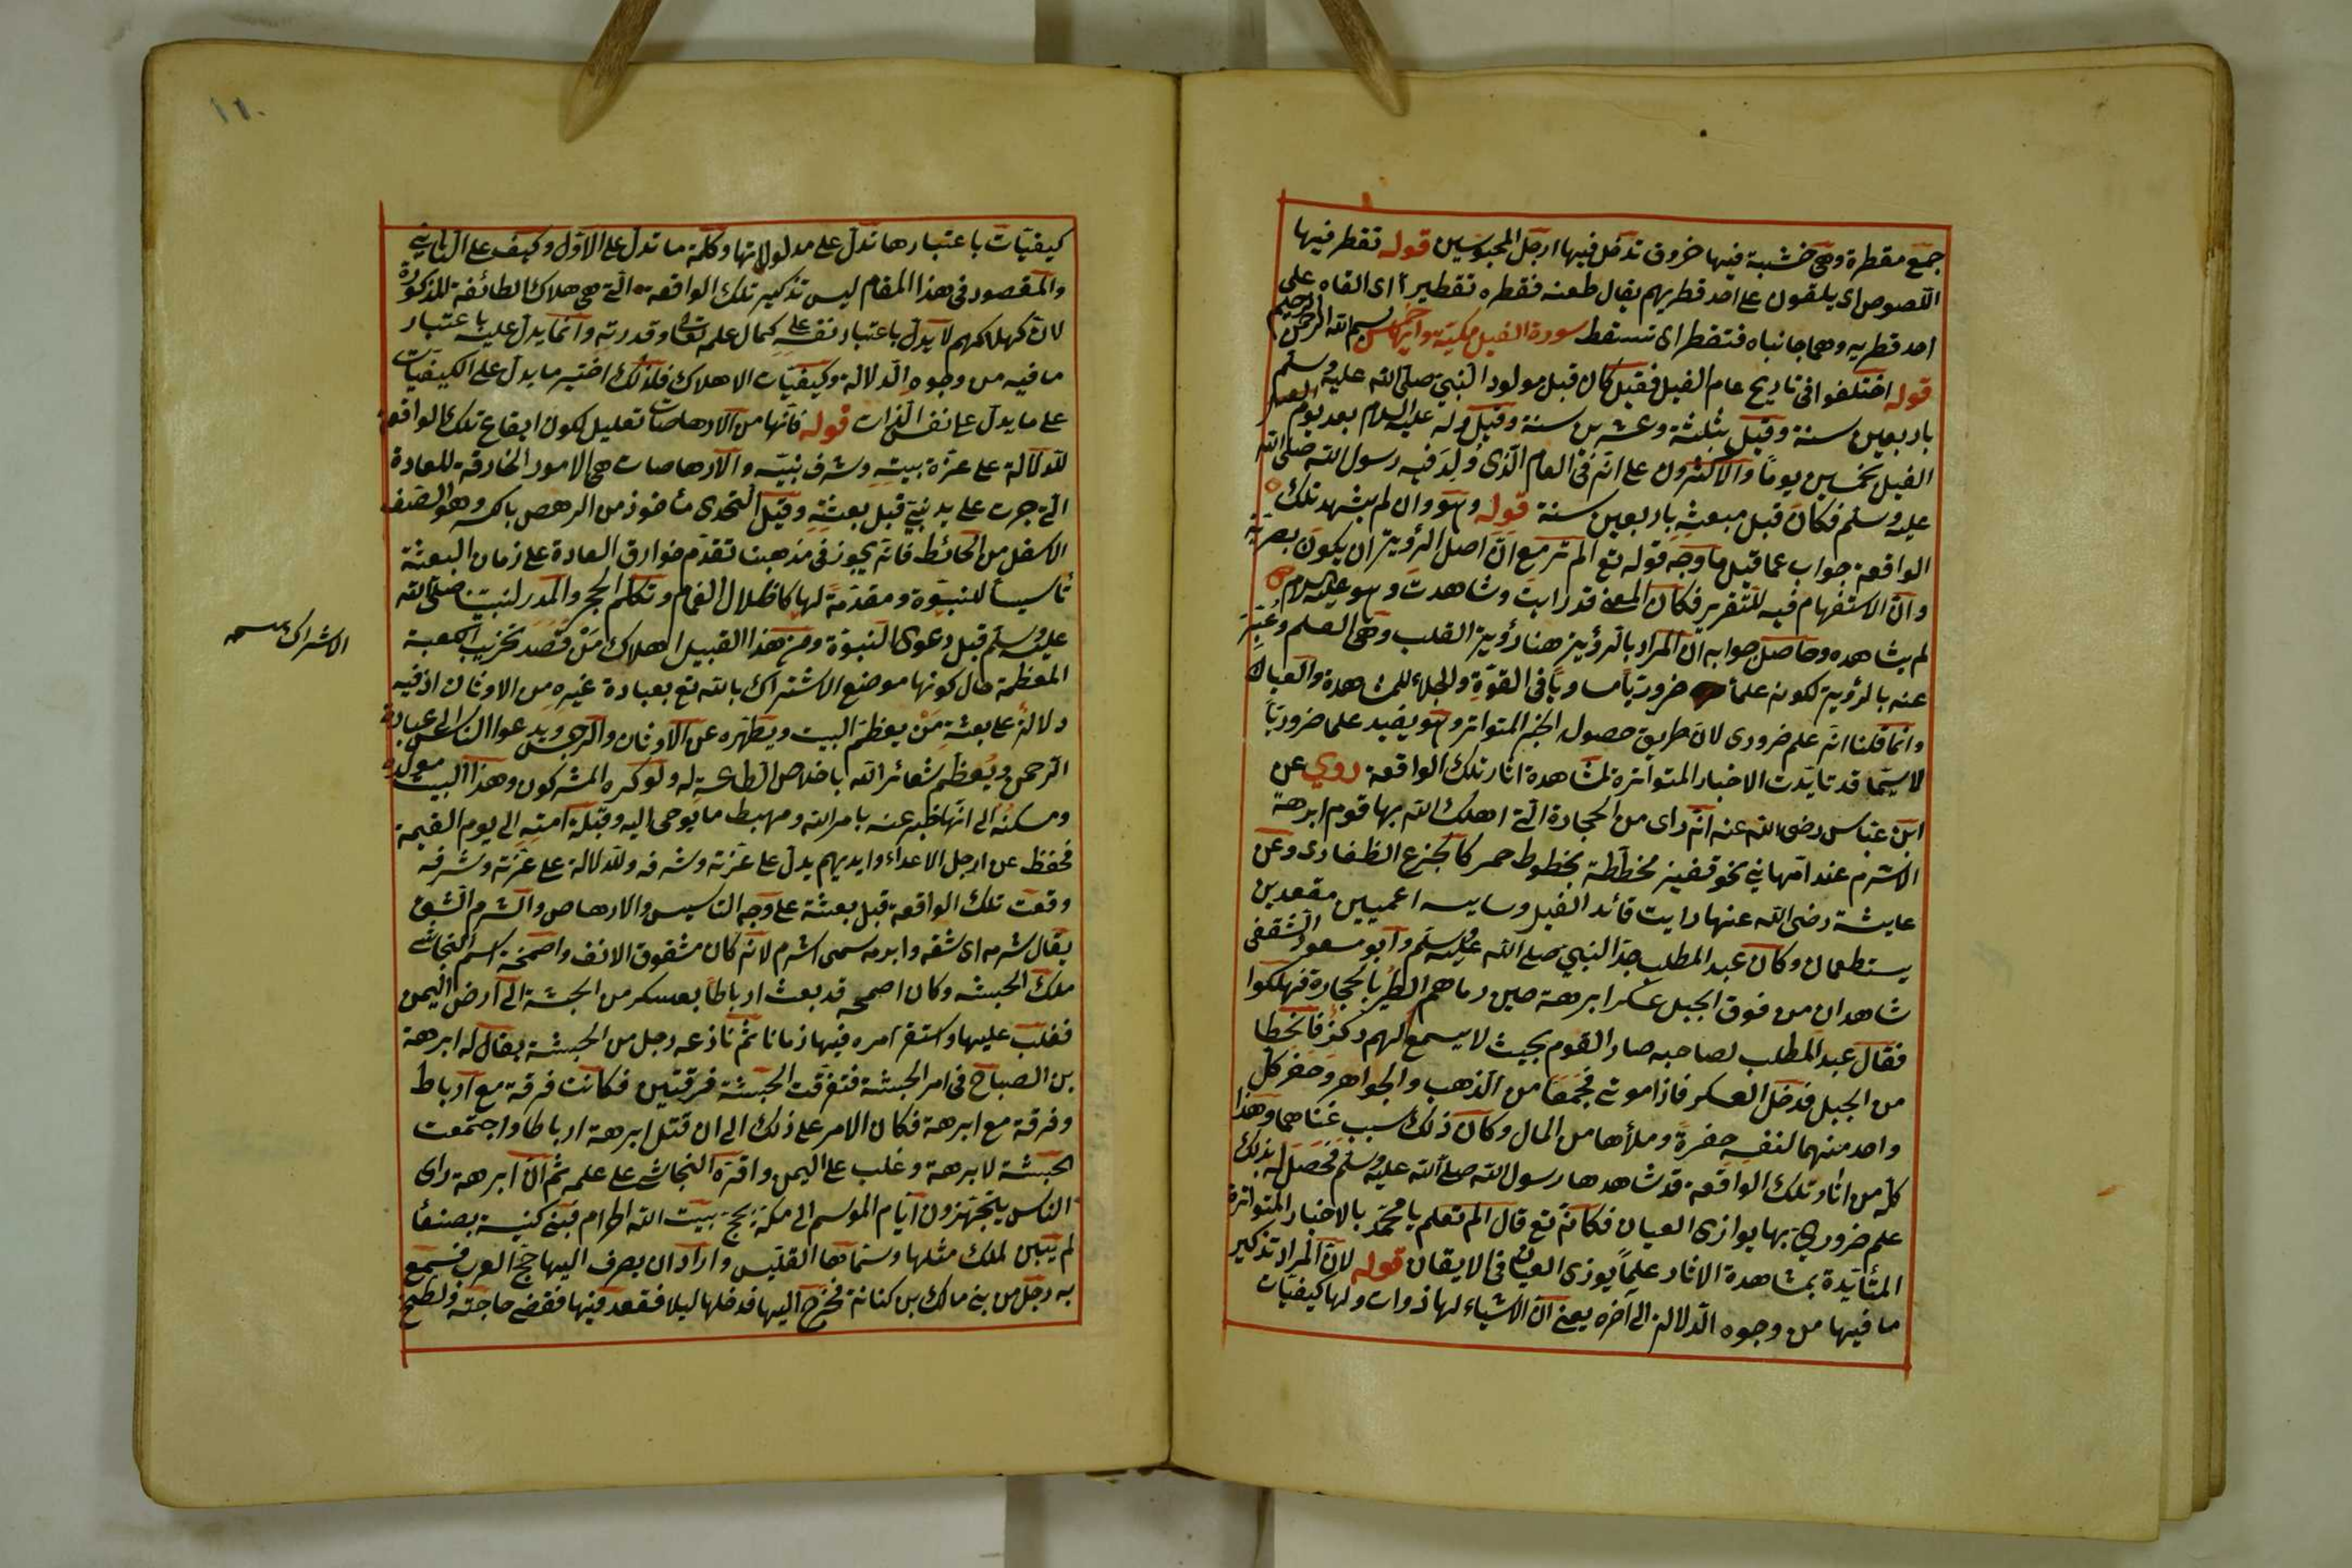 جمع مقطرة وهى خشبة فيها خروق تدخل فيها ارجل المحبوسين قوله تقطر فيها
اللصوص اى يلقون على احد قطريهم يقال طعنه فقطره تقطيرا اى القاه على
احد قطريه وهما جانباه فتقطر اى تسقط سورة الفيل مكية وآيها خمس بسم الله الرحمن الرحيم
قوله اختلفوا فى تاريخ عام الفيل فقيل كان قبل مولود النبى صلى الله عليه وسلم
باربعين سنة وقيل بثلثة وعشرين سنة وقيل ولد عليه السلام بعد يوم
الفيل بخمسين يوما والاكثرون على انه فى العام الذى ولد فيه رسول الله صلى الله
عليه وسلم فكان قبل مبعثه باربعين سنة قوله وهو وان لم يشهد تلك
الواقعة جواب عما قيل ما وجه قوله تع الم تر مع ان اصل الرؤية ان يكون بصرية
وان الاستفهام فيه للتقرير فكان المعنى قد رايت وشاهدت وهو عليه السلام
لم يشاهده وحاصل جوابه ان المراد بالرؤية هنا رؤية القلب وهى العلم وعبر
عنه بالرؤية لكونه علما ضروريا مساويا فى القوة والجلاء للمشاهدة والعيان
وانما قلنا انه علم ضرورى لان طريق حصوله الخبر المتواتر وهو يفيد علما ضروريا
لاسيما قد تايدت الاخبار المتواترة لمشاهدة اثار تلك الواقعة روي عن
ابن عباس رضى الله عنه انه راى من الحجارة التى اهلك الله بها قوم ابرهة
الاشرم عند ام هانى نحو قفيز مخططة بخطوط حمر كالجزع الظفارى وعن
عايشة رضى الله عنها رايت قائد الفيل وسايسه اعميين مقعدين
يستطعمان وكان عبد المطلب جد النبى صلى الله عليه وسلم وابو مسعود الثقفى
شاهدان من فوق الجبل عسكر ابرهة حين رماهم الطير بالحجارة فهلكوا
فقال عبد المطلب لصاحبه صار القوم بحيث لا يسمع لهم ركز فانحطا
من الجبل فدخل العسكر فاذا موتى فجمعا من الذهب والجواهر وحفر كل
واحد منهما لنفسه حفرة وملأها من المال وكان ذلك سبب غناهما وهذا
كله من اثار تلك الواقعة قد شاهدها رسول الله صلى الله عليه وسلم فحصل له بذلك
علم ضرورى بها يوازى العيان فكانه تع قال الم تعلم يا محمد بالاخبار المتواترة
المتأيدة بمشاهدة الاثار علما يوزى العيان فى الايقان قوله لان المراد تذكير
ما فيها من وجوه الدلالة الى آخره يعنى ان الاشياء لها ذوات ولها كيفيات
١١٠
كيفيات باعتبارها تدل على مدلولاتها وكلمة ما تدل على الاول وكيف على الثانى
والمقصود فى هذا المقام ليس تذكير تلك الواقعة التى هى هلاك الطائفة المذكورة
لان هلاكهم لا يدل باعتبار نفسه على كمال علمه تعالى وقدرته وانما يدل عليه باعتبار
ما فيه من وجوه الدلالة وكيفيات الاهلاك فلذلك اختير ما يدل على الكيفيات
على ما يدل على نفس الذات قوله فانها من الارهاصات تعليل لكون ايقاع تلك الواقعة
للدلالة على عزة بيته وشرف نبيه والارهاصات هى الامور الخارقة للعادة
التى جرت على يد نبى قبل بعثته وقيل التحدى مأخوذ من الرهص بالكسر وهو الصف
الاسفل من الحائط فانه يجوز فى مذهبنا تقدم خوارق العادة على زمان البعثة
تأسيسا للنبوة ومقدمة لها كاظلال الغمام وتكلم الحجر والمدر لنبينا صلى الله
عليه وسلم قبل دعوى النبوة ومن هذا القبيل اهلاك من قصد تخريب الكعبة
المعظمة حال كونها موضع الاشتراك بالله تع بعبادة غيره من الاوثان اذ فيه
الاشراك
دلالة على بعثة من يعظم البيت ويطهره عن الاوثان والرجس ويدعوا الناس الى عبادة
الرحمن ويعظم شعائر الله باخلاص الطاعة له ولو كره المشركون وهذا البيت مولده
ومسكنه الى انتهاضه عنه بامر الله ومهبط ما يوحى اليه وقبلة امته الى يوم القيمة
فحفظ عن ارجل الاعداء وايديهم يدل على عزته وشرفه وللدلالة على عزته وشرفه
وقعت تلك الواقعة قبل بعثته على وجه التاسيس والارهاص والشرم الشق
يقال شرمه اى شقه وابرهه سمى اشرم لانه كان مشقوق الانف واصحمة اسم النجاشى
ملك الحبشه وكان اصحمه قد بعث ارباطا بعسكر من الحبشة الى ارض اليمن
فغلب عليها واستقر امره فيها زمانا ثم نازعه رجل من الحبشة يقال له ابرهة
بن الصباح فى امر الحبشة فتفرقت الحبشة فرقتين فكانت فرقة مع ارباط
وفرقة مع ابرهة فكان الامر على ذلك الى ان قتل ابرهة ارباطا واجتمعت
الحبشة لابرهة وغلب على اليمن واقره النجاشى على علمه ثم ان ابرهة راى
الناس يتجهزون ايام الموسم الى مكة بحج بيت الله الحرام فبنى كنيسة بصنعأ
لم يبن لملك مثلها وسماها القليس واراد ان يصرف اليها حج العرب فسمع
به رجل من بنى مالك بن كنانة فخرج اليها فدخلها ليلا فقعد فيها فقضى حاجته ولطخ